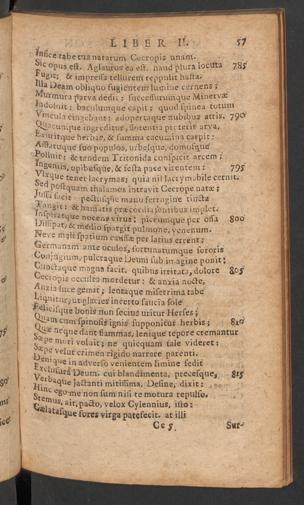 LIBER II. 57
Infice tabe tua natarum Cecropis unam.
Sic opus est. Aglauros ea est. haud plura locuta 785
Fugit; & impressa tellurem reppulit hasta.
Illa Deam obliquo fugientem lumine cernens;
Murmura parva dedit: successurumque Minervæ
Indoluit: baculumque capit; quod spinea totum
Vincula cingebant: adopertaque nubibus atris, 790
Quacunque ingreditur, florentia proterit arva,
Exuritque herbas, & summa cacumina carpit:
Afflatuque suo populos, urbesque, domosque
Polluit: & tandem Tritonida conspicit arcem;
Ingeniis, opibusque, & festa pace virentem: 795
Vixque tenet lacrymas; quia nil lacrymabile cernit.
Sed postquam thalamos intravit Cecrope natæ;
Jussa facit: pectusque manu ferrugine tincta
Tangit: & hamatis præcordia sentibus implet.
Inspiratque nocens virus: piceumque per ossa 800
Dissipat, & medio spargit pulmone, venenum.
Neve mali spatium caussæ per latius errent;
Germanam ante oculos, fortunatumque sororis
Conjugium, pulcraque Deum sub imagine ponit;
Cunctaque magna facit. quibus irritata, dolore 805
Cecropis occulto mordetur: & anxia nocte,
Anxia luce gemit; lentaque miserrima tabe
Liquitur, ut glacies incerto saucia sole
Felicisque bonis non secius uritur Herses;
Quam cum spinosis ignis supponitur herbis; 810
Quæ neque dant flammas, lenique tepore cremantur
Sæpe mori voluit; ne quicquam tale videret:
Sæpe velut crimen rigido narrare parenti.
Denique in adverso venientem limine sedit
Exclusura Deum. cui blandimenta, precesque, 815
Verbaque jactanti mitissima, Desine, dixit:
Hinc ego me non sum nisi te motura repulso.
Stemus, ait, pacto, velox Cyllenius, isto:
Cælatasque fores virga patefecit. at illi
Cc 5 Sur-